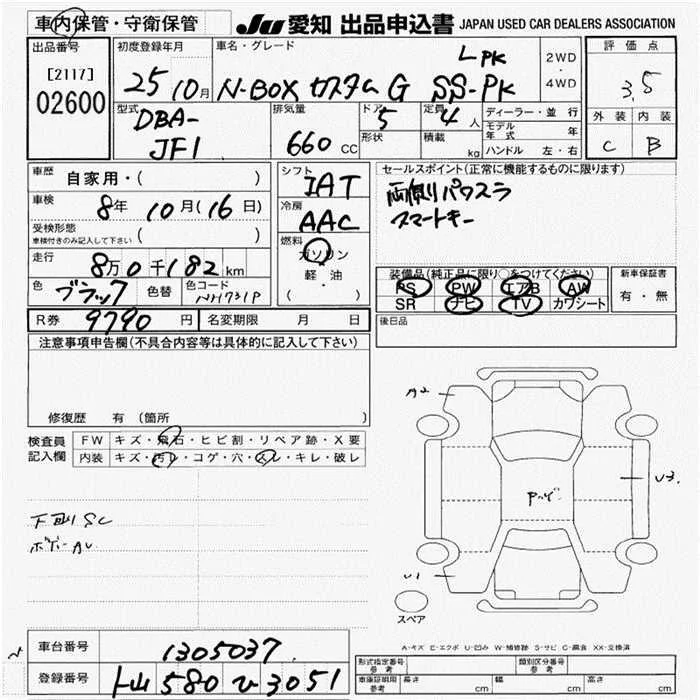 車内保管・守衛保管
JU 愛知 出品申込書 JAPAN USED CAR DEALERS ASSOCIATION
出品番号
[2117]
02600
初度登録年月
25 10月
車名・グレード
L PK
N-BOX カスタム G SS-PK
2WD
4WD
評価点
3.5
外装 内装
C B
型式
DBA-
JF1
排気量
660 CC
ドア
5
形状
定員
4 人
積載 kg
ディーラー・並行
モデル年式 年
ハンドル 左・右
車歴 自家用・( )
車検 8年 10月(16日)
受検形態
車検付きのみ記入して下さい ( )
走行
8万0千182km
色 ブラック 色替 色コード
NH731P
シフト
IAT
冷房
AAC
燃料
ガソリン
軽・油
( ・ )
セールスポイント(正常に機能するものに限ります)
両側パワスラ
スマートキー
装備品(純正品に限り○をつけてください)
PS PW エアB AW
SR ナビ TV カワシート
新車保証書
有・無
後日品
R券 9790 円 名変期限 月 日
注意事項申告欄(不具合内容等は具体的に記入して下さい)
修復歴 有(箇所 )
検査員記入欄
FW キズ・飛石・ヒビ割・リペア跡・X要
内装 キズ・汚レ・コゲ・穴・スレ・キレ・破レ
下回りSC
ボデーAU
A2
U3
U1
スペア
A-キズ E-エクボ U-凹み W-補修跡 S-サビ C-腐食 XX-交換済
車台番号 1305037
登録番号 580 ひ 3051
形式指定番号
参考
類別区分番号
参考
車庫証明用
参考
長さ cm 幅 cm 高さ cm